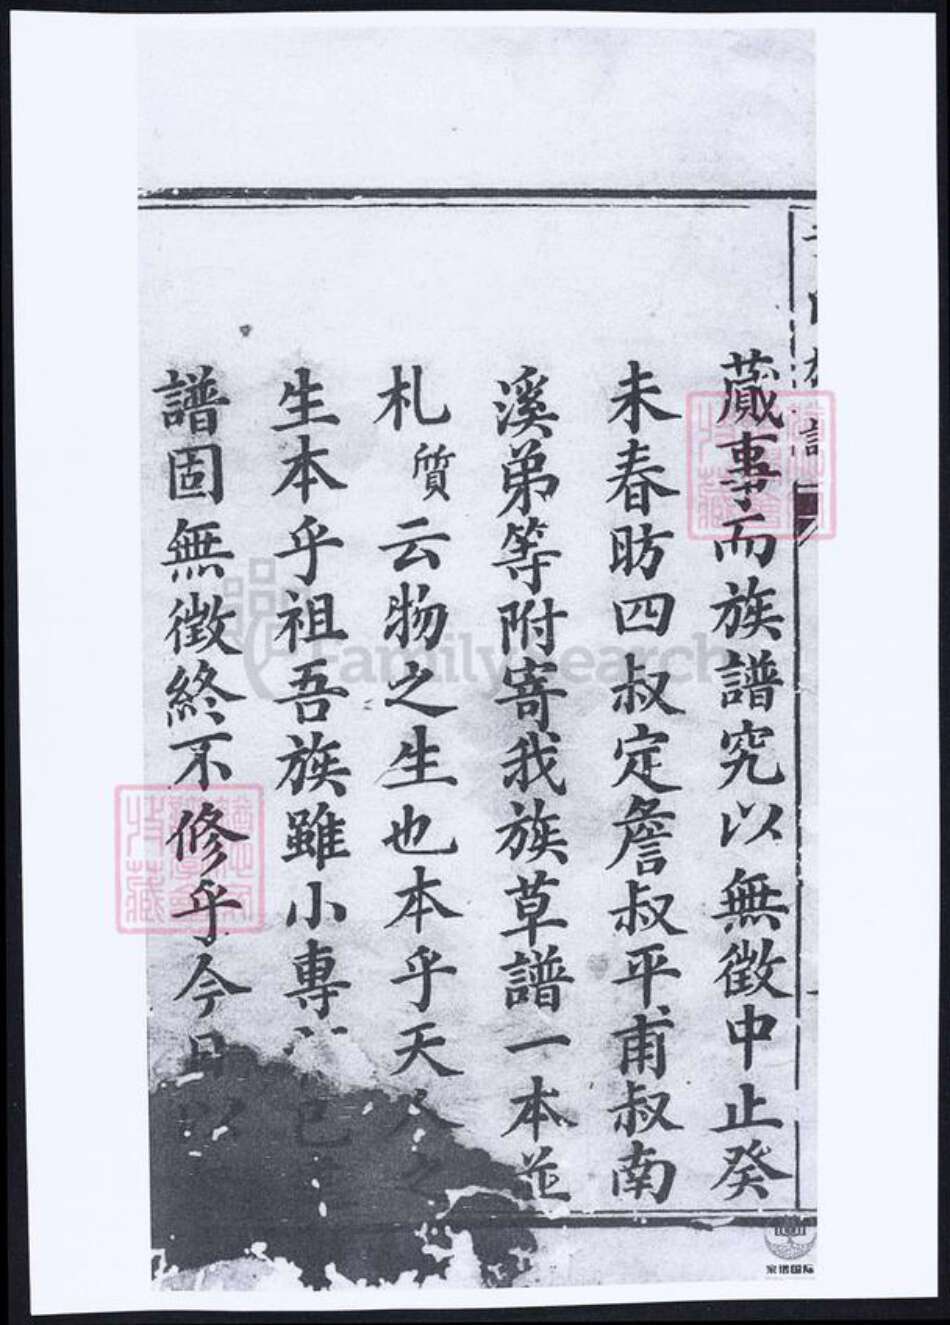 蕆事而族譜究以無徵中止癸
未春昉四叔定詹叔平甫叔南
溪弟等附寄我族草譜一本並
札質云物之生也本乎天人之
生本乎祖吾族雖小專
譜固無徵終不修乎今日以
FamilySearch
家谱国际